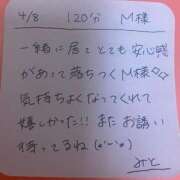 4/8 120分 M様
一緒に居てとても安心感
があって落ちつくM様♡♡
気持ちよくなってくれて
嬉しかった!! またお誘い
待ってるね(*'-'*)
みと